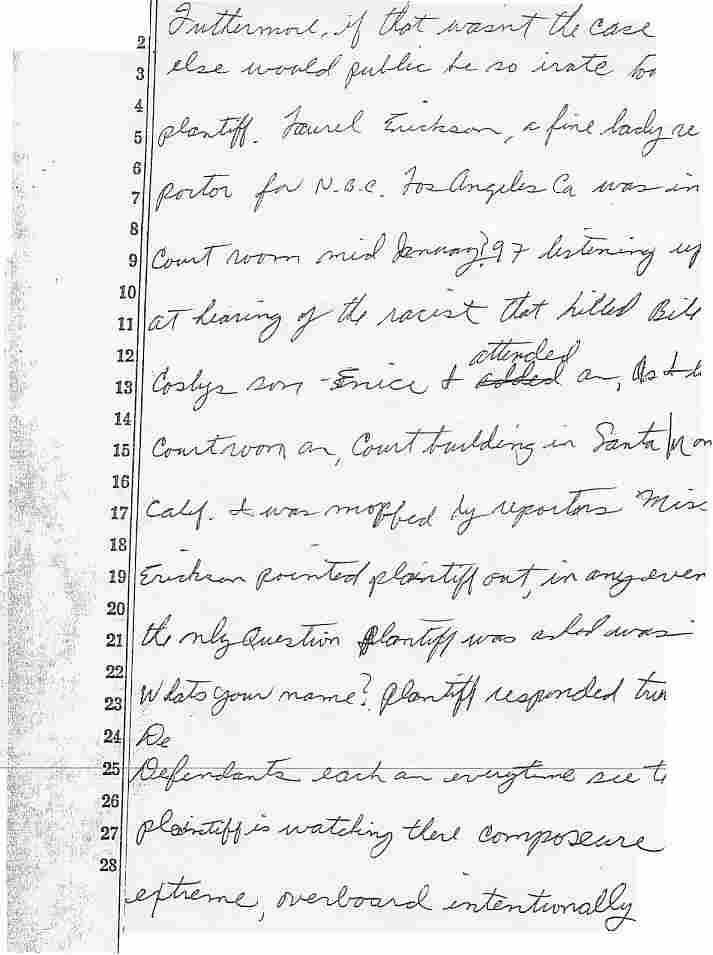 Futhermore, if that wasnt the case
2
else would public be so irate
3
4
plantiff. Laurel Erickson, a fine lady re
5
6
portor for N.B.C. Los Angeles Ca was in
7
8
Court room mid January? 97 listening up
9
10
at hearing of the racist that killed Bill
11
12
attended
Cosbys son - Enice I added an, As I
13
14
Courtroom an, Court building in Santa Mon
15
16
Calif. I was mopped by reporters Miss
17
18
Erickson pointed plaintiff out, in any even
19
20
the nly Question plantiff was asked was
21
22
Whats your name? plantiff responded
23
24
De
Defendants each an everytime see
25
26
plaintiff is watching there composeure
27
28
extreme, overboard intentionally